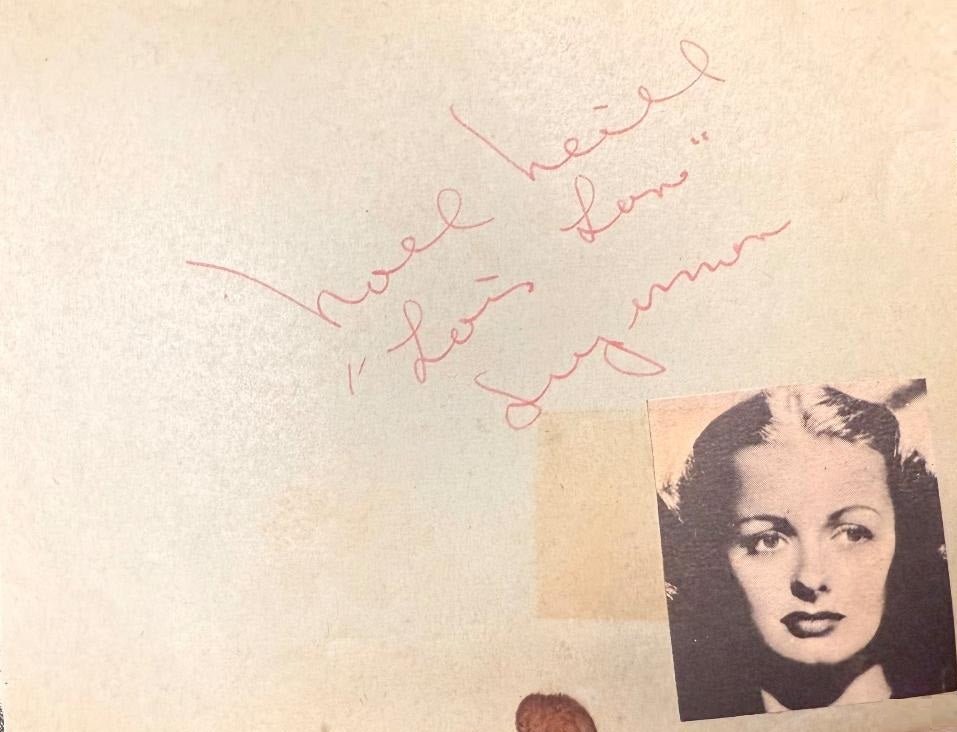 Noel Neill
"Lois Lane"
Superman